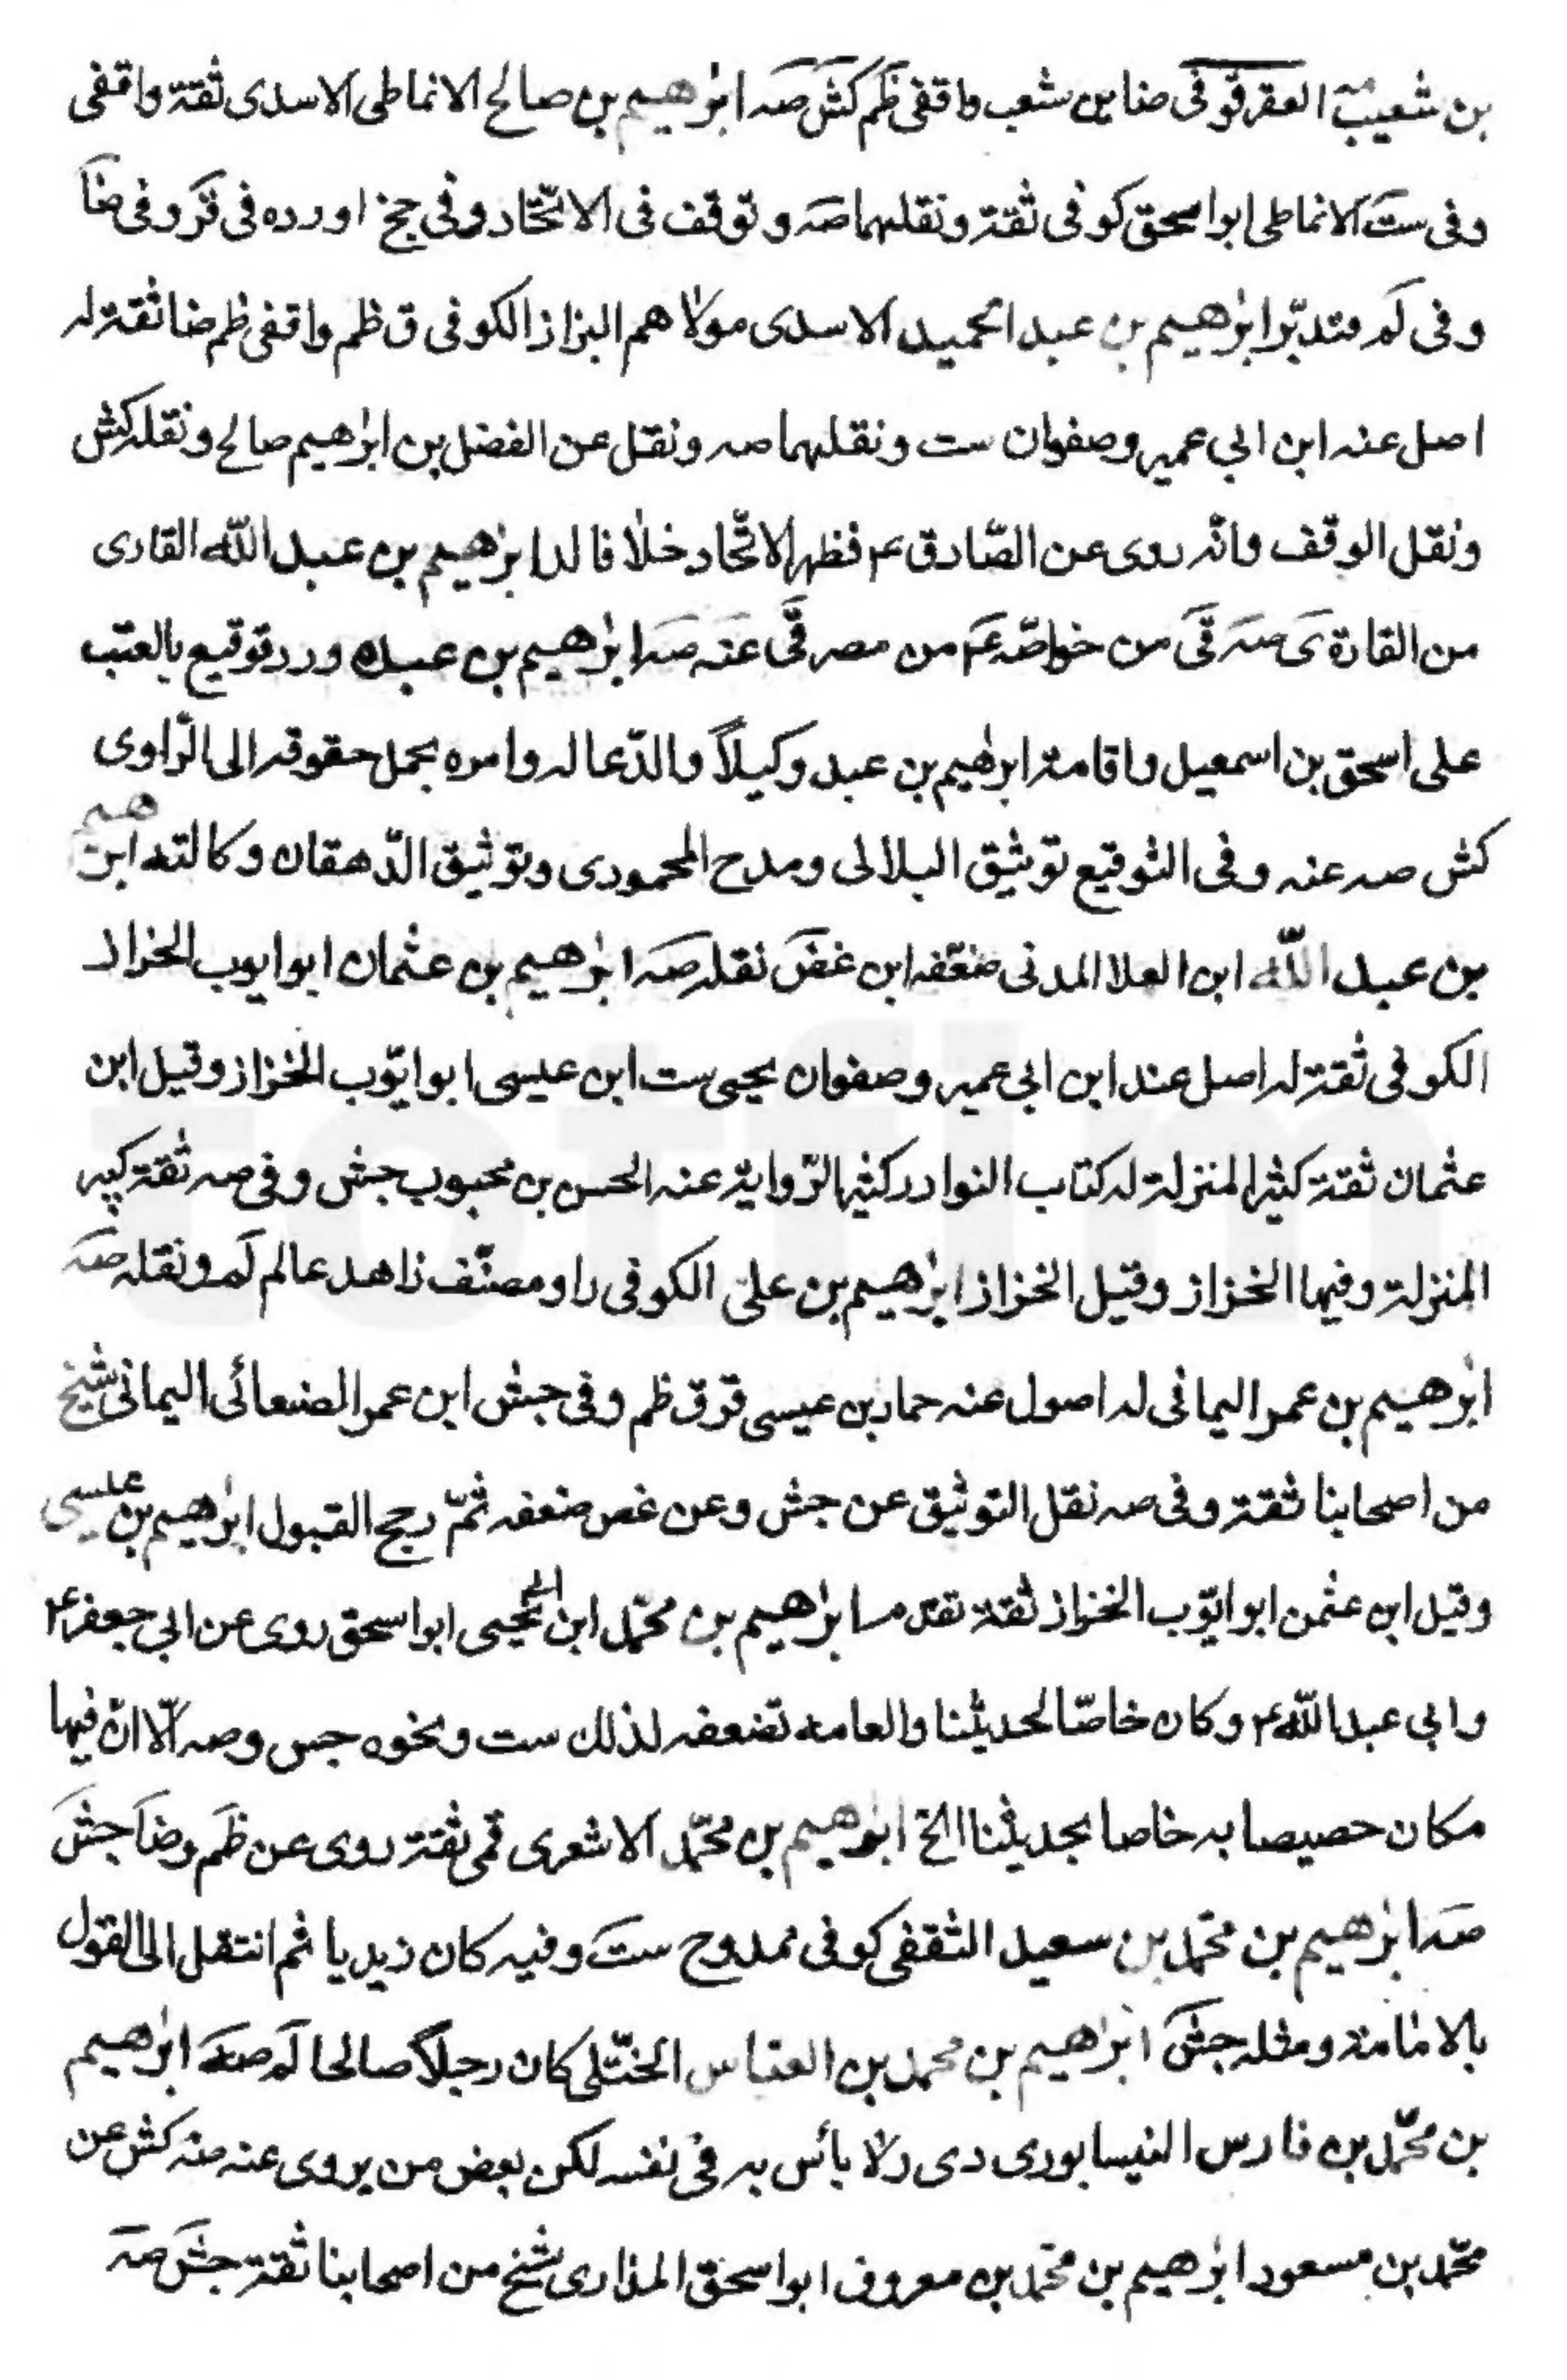 بن شعيب العقرقوفى ضا بن شعب واقفى ظم كش صه ابرهيم بن صالح الانماطى الاسدى ثقة واقفى
وفى ست الانماطى ابواسحق كوفى ثقة ونقلهما صه وتوقف فى الاتّحاد وفى جخ اورده فى قر وفى ضا
وفى لم فتدبّر ابرهيم بن عبد الحميد الاسدى مولاهم البزاز الكوفى ق ظم واقفى ظم ضا ثقة له
اصل عنه ابن ابي عمير وصفوان ست ونقلهما صه ونقل عن الفضل بن ابرهيم صالح ونقله كش
ونقل الوقف وانّه روى عن الصّادق ع فظهر الاتّحاد خلافا لد ابرهيم بن عبد اللّه القارى
من القارة ى صه قى من خواصّه ع من مصر قى عنه صه ابرهيم بن عبده ورد توقيع بالعتب
على اسحق بن اسمعيل واقامة ابرهيم بن عبد وكيلاً والدّعا له وامره بحمل حقوقه الى الرّاوى
كش صه عنه وفى التوقيع توثيق البلالى ومدح المحمودى وتوثيق الدّهقان وكالته ابرهيم
بن عبد اللّه ابن العلا المدنى ضعّفه ابن غض نقله صه ابرهيم بن عثمان ابو ايوب الخزاز
الكوفى ثقة له اصل عند ابن ابى عمير وصفوان يحيى ست ابن عيسى ابو ايّوب الخزاز وقيل ابن
عثمان ثقة كثير المنزلة له كتاب النوادر كثير الرّواية عنه الحسن بن محبوب جش وفى صه ثقة كبير
المنزلة وفيها الخزاز وقيل الخزاز ابرهيم بن على الكوفى راو مصنّف زاهد عالم لم ونقله صه
ابرهيم بن عمر اليمانى له اصول عنه حماد بن عيسى قر ق ظم وفى جش ابن عمر الصنعائى اليمانى شيخ
من اصحابنا ثقة وفى صه نقل التوثيق عن جش وعن غض ضعفه ثمّ رجح القبول ابرهيم بن عيسى
وقيل ابن عثمن ابو ايّوب الخزاز ثقة ابرهيم بن محمّد ابن ابى يحيى ابو اسحق روى عن ابي جعفر ع
وابى عبد اللّه ع وكان خاصّا لحديثنا والعامه تضعفه لذلك ست ونحوه جس وصه الّا انّ فيها
مكان حصيصا به خاصا بحديثنا الخ ابرهيم بن محمّد الاشعرى قمى ثقة روى عن ظم وضا جش
صه ابرهيم بن محمّد بن سعيد الثقفى كوفى ممدوح ست وفيه كان زيديا ثم انتقل الى القول
بالامامة ومثله جش ابرهيم بن محمد بن العباس الختّلى كان رجلاً صالحا لم صه ابرهيم
بن محمّد بن فارس النيسابورى دى ر لا بأس به فى نفسه لكن بعض من يروى عنه منه كش عن
محمّد بن مسعود ابرهيم بن محمّد بن معروف ابو اسحق المذارى شيخ من اصحابنا ثقة جش صه